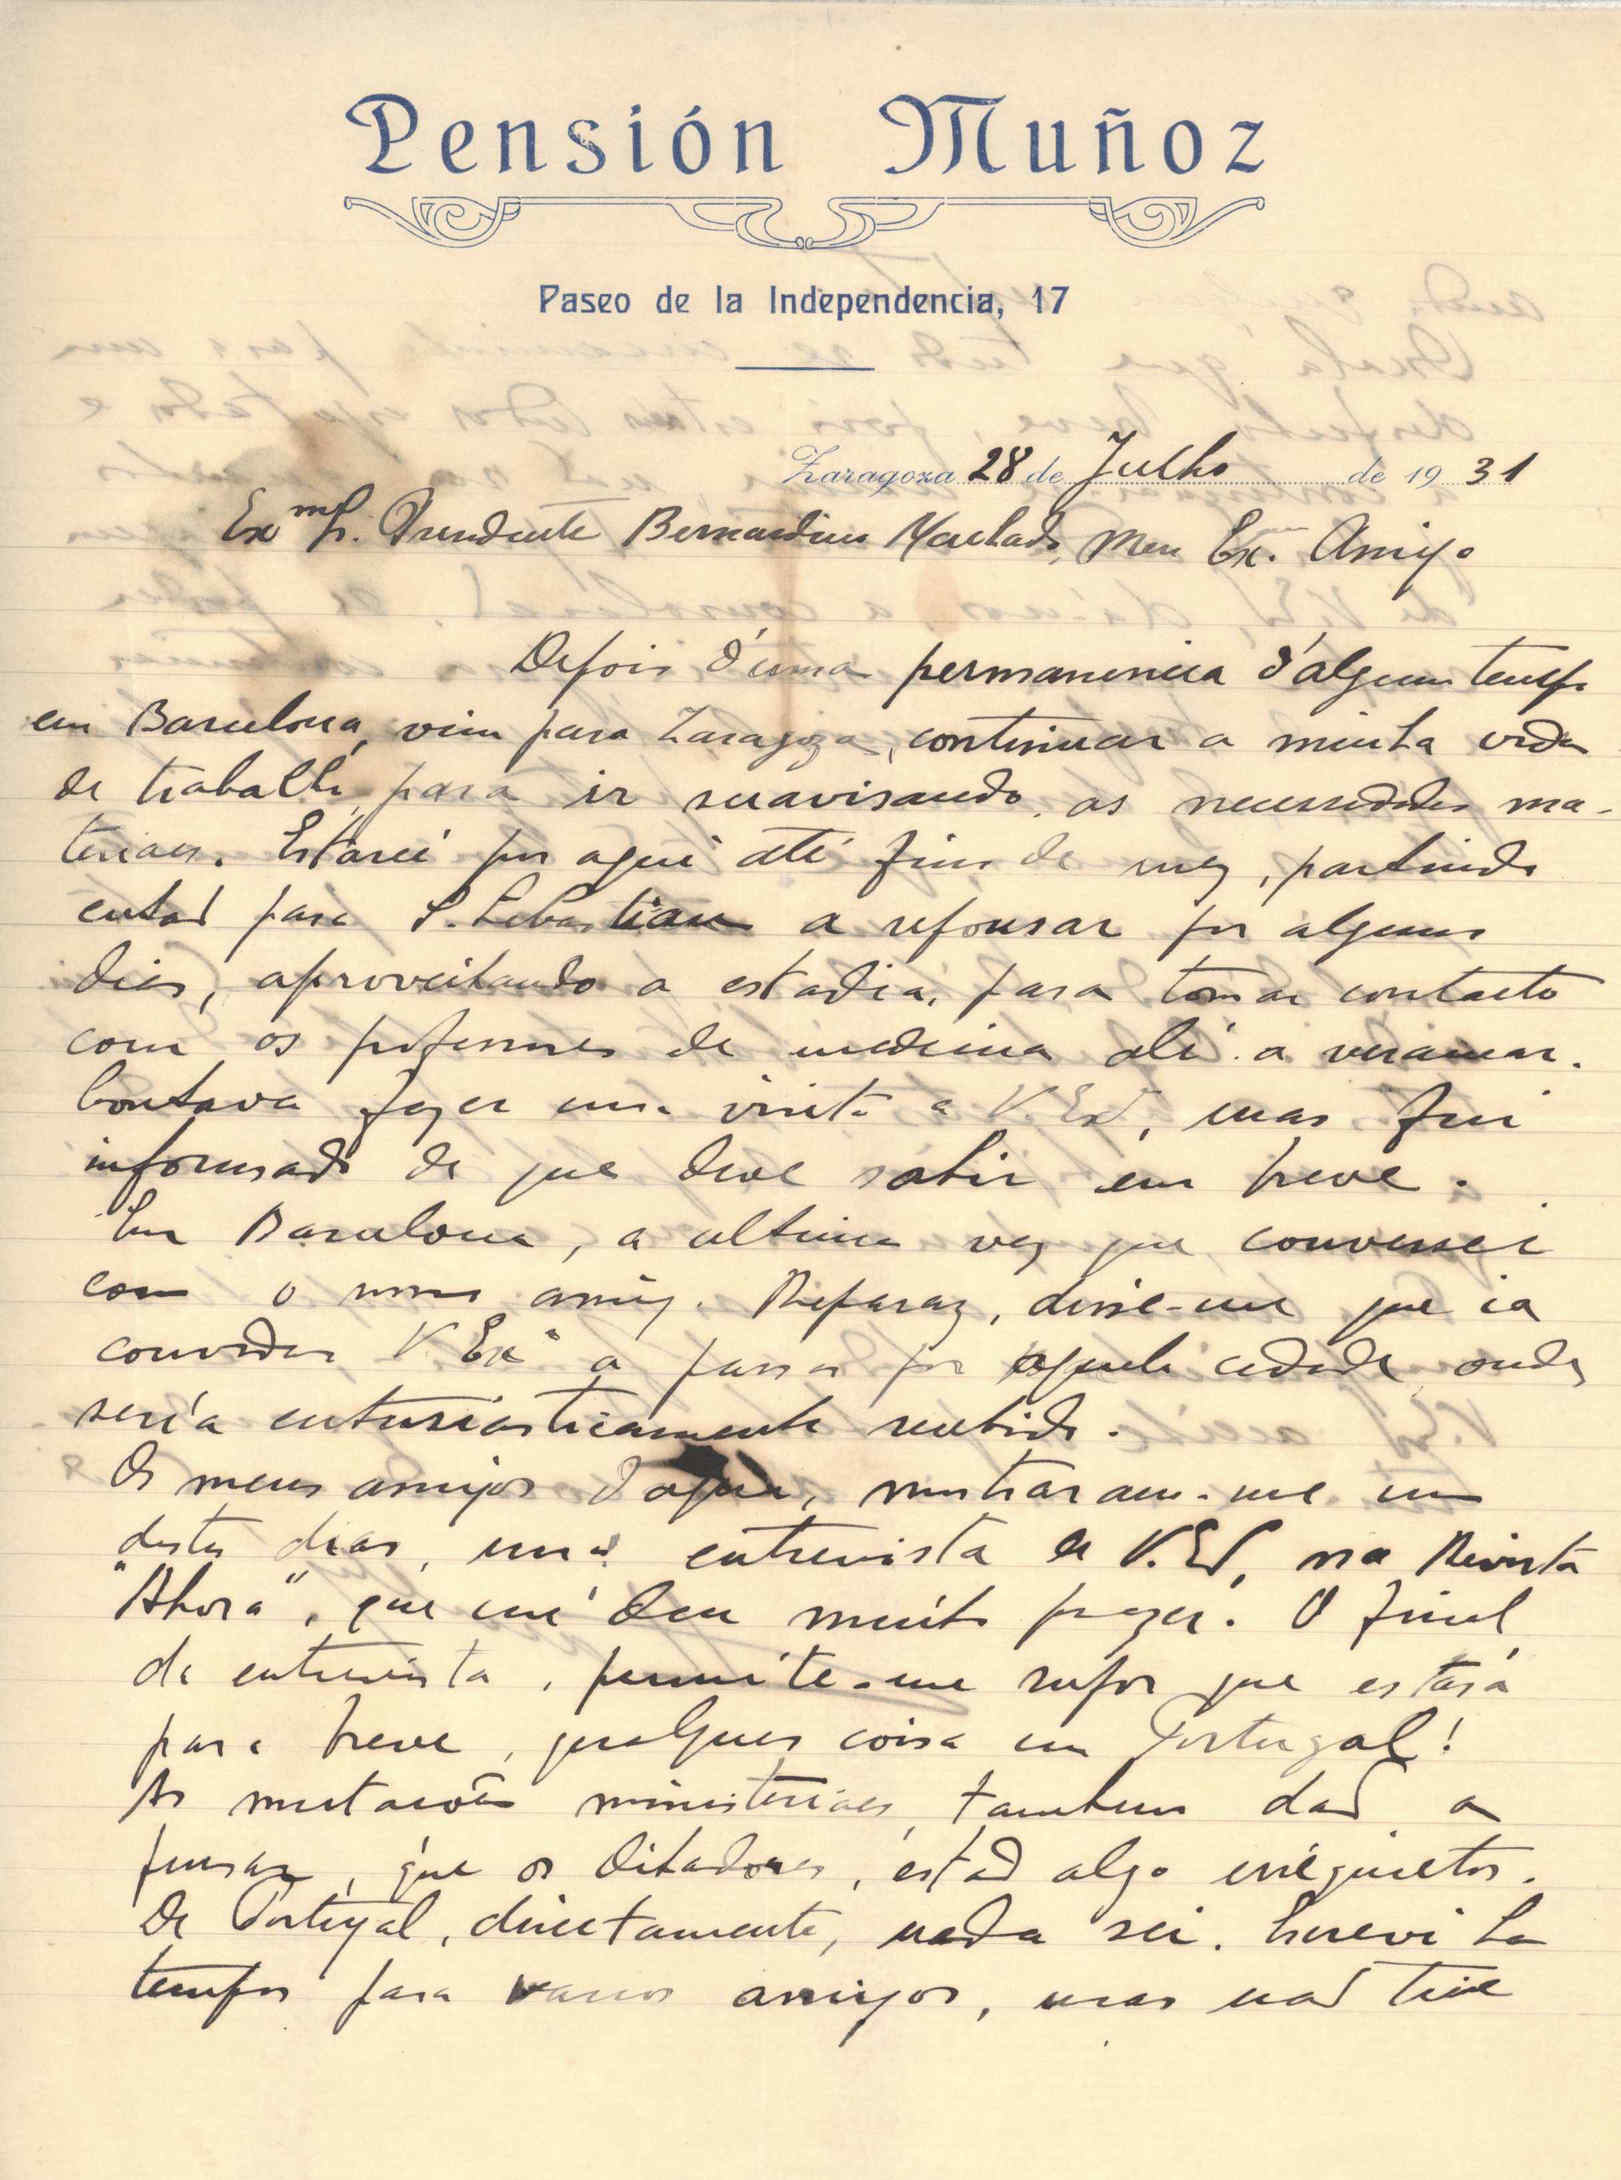 Pensión Muñoz
Paseo de la Independencia, 17
Zaragoza 28 de Julho de 1931
Exmo Sr. Presidente Bernardino Machado, Meu Ex. Amigo
Depois d'uma permanencia d'algum tempo
em Barcelona, vim para Zaragoza, continuar a minha vida
de trabalho, para ir suavisando as necessidades ma-
teriaes. Estarei por aqui até fins de mez, partindo
entad para S. Sebastian a repousar por alguns
dias, aproveitando a estadia, para tomar contacto
com os professores de medicina ali a veranear.
Contava fazer uma visita a V. Exª, mas fui
informado de que deve sahir em breve.
Em Barcelona, a ultima vez que conversei
com o nosso amigo Reparaz, disse-me que ia
convidar V. Exª a passar por aquela cidade onde
seria entusiasticamente recebido.
Os meus amigos d'aqui, mostraram-me um
destes dias, uma entrevista de V. Exª, na Revista
"Ahora", que me deu muito prazer. O final
da entrevista, permite-me supor que estará
para breve, qualquer coisa em Portugal!
As mutações ministeriaes, tambem dad a
pensar, que os ditadores, estad algo irrequietos.
De Portugal, directamente, nada sei. Escrevi ha
tempos para varios amigos, mas nad tive